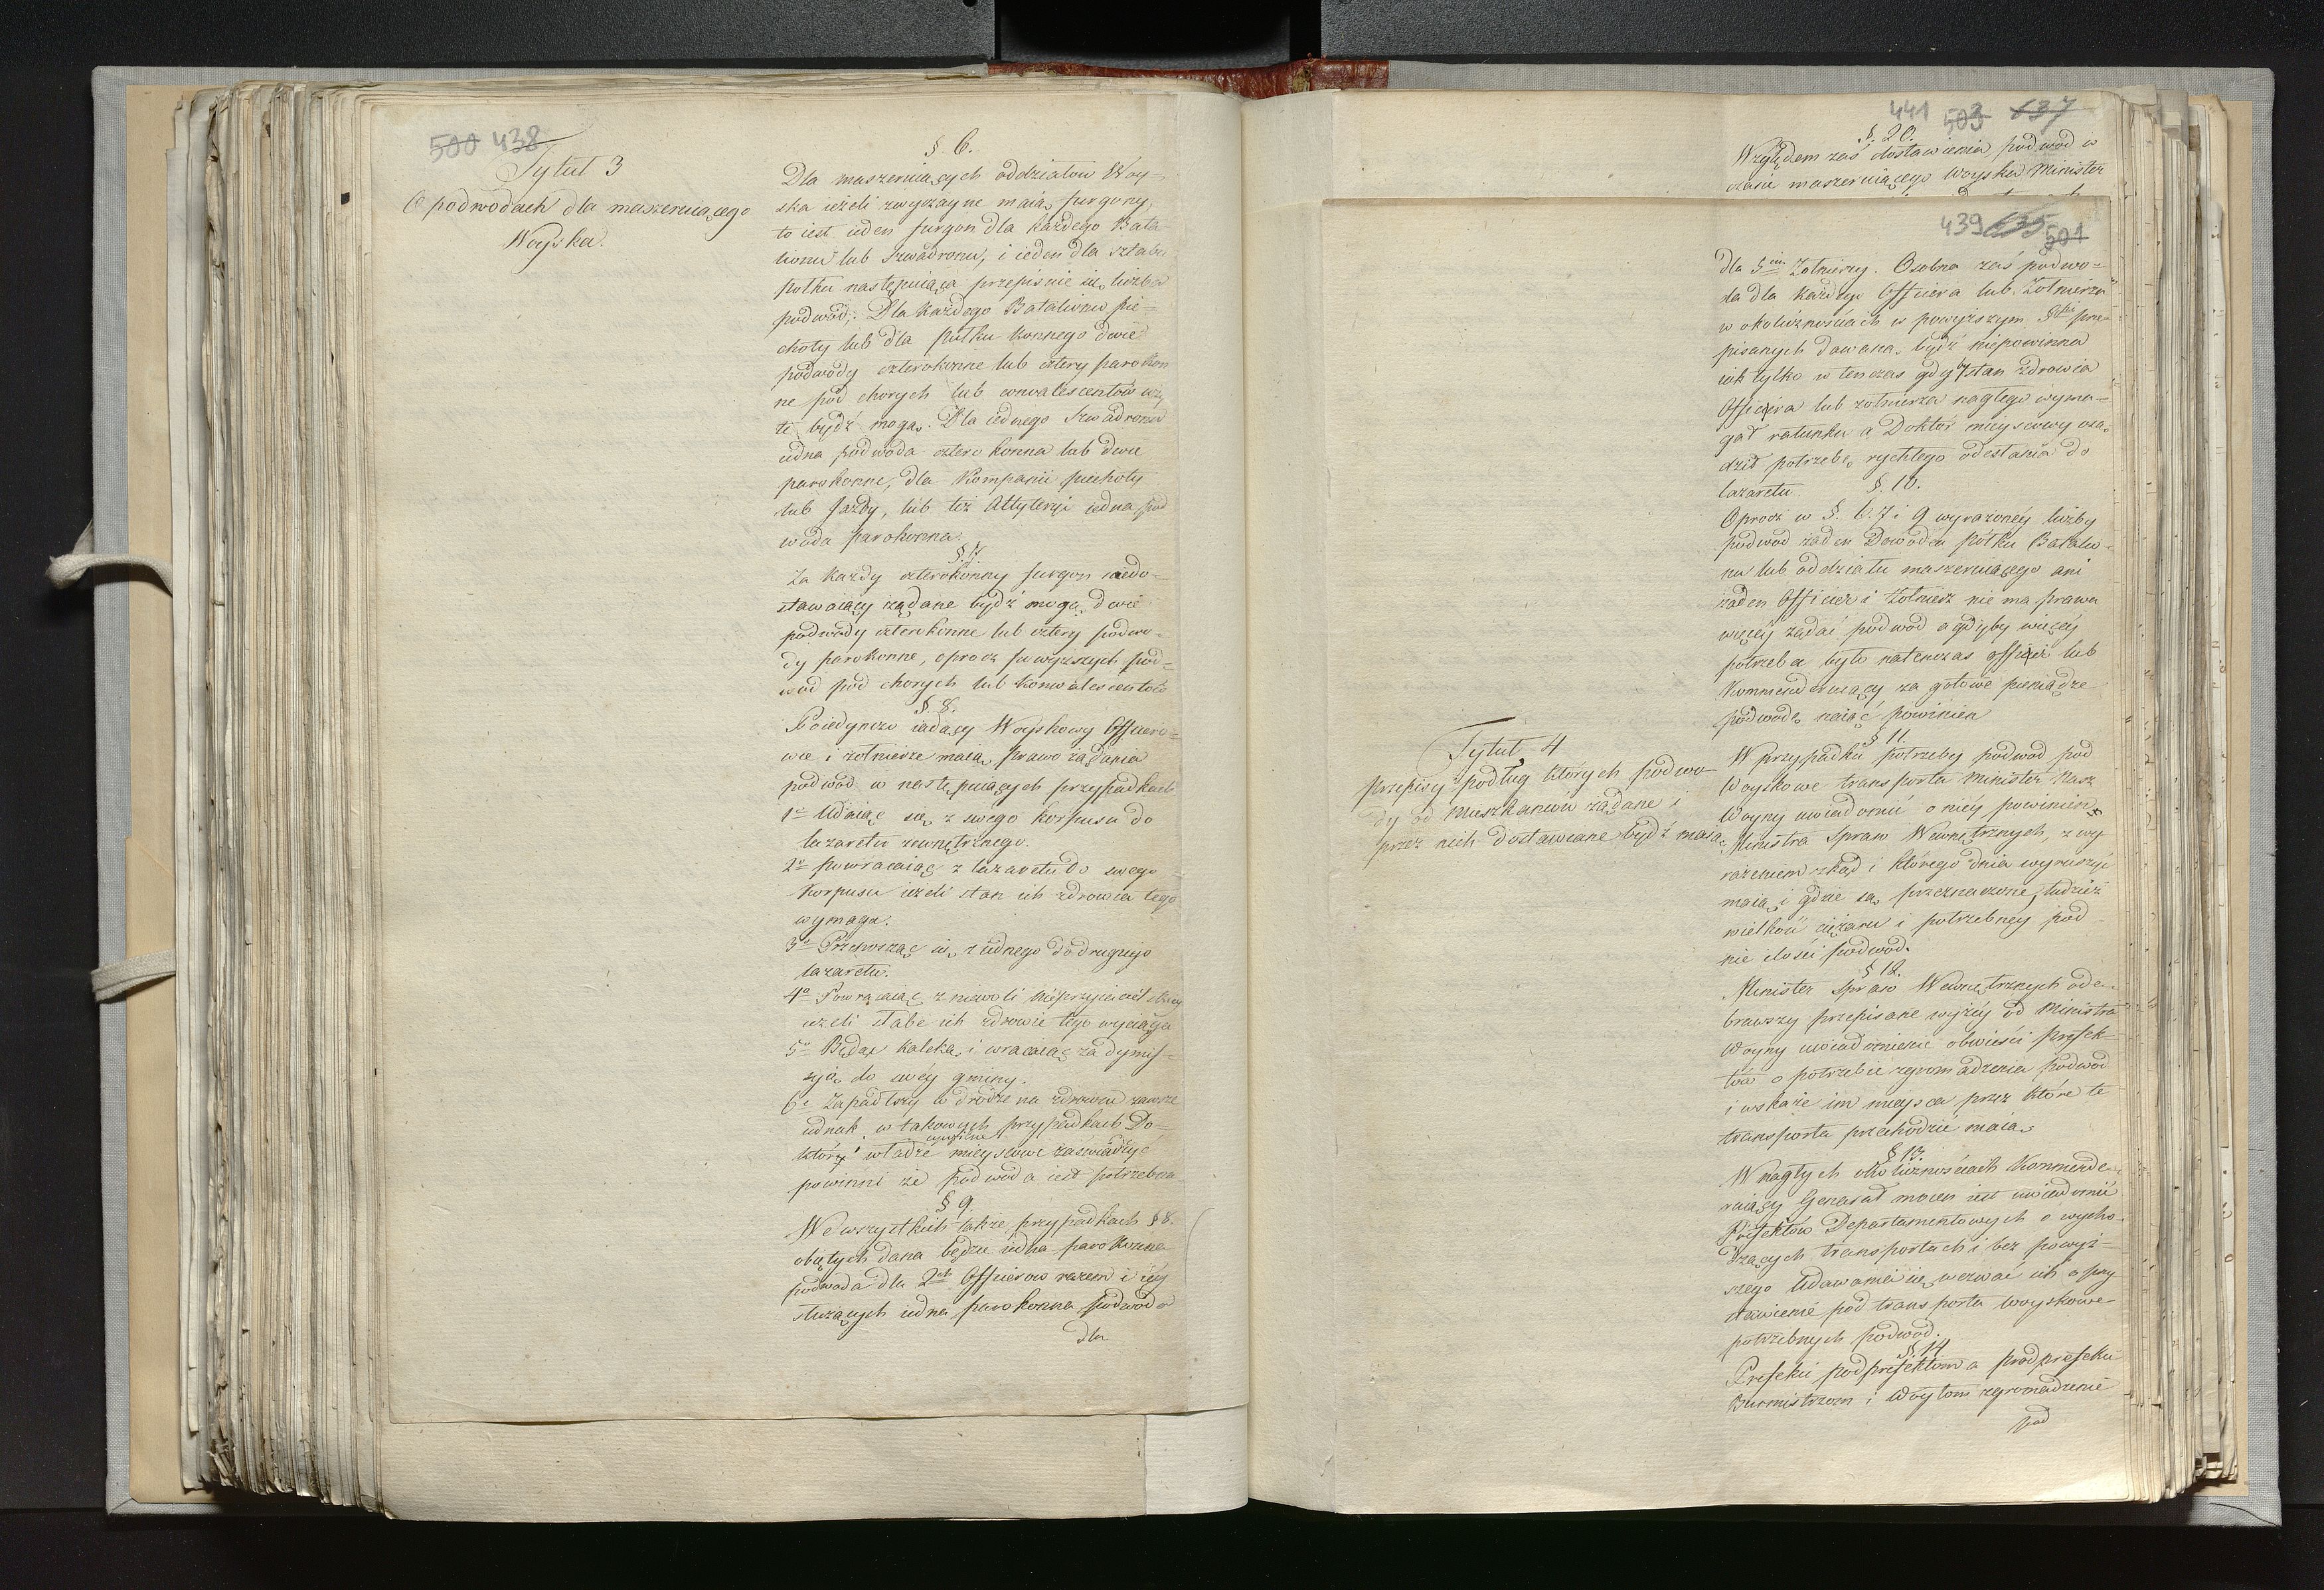 500 438
Tytuł 3
O podwodach dla maszeruiącego
Woyska.
§. 6.
Dla maszeruiących oddziałów Woy=
ska ieżeli zwyczayne maią furgony,
to iest ieden furgon dla każdego Bata
lionu lub Szwadronu, i ieden dla sztabu
Półku następuiąca przepisuie się liczba
podwód: Dla każdego Batalionu pie=
choty lub dla Półku konnego dwie
podwody czterokonne lub cztery parokon
ne pod chorych lub konwalescentów uży
te bydź mogą. Dla iednego Szwadronu
iedna podwoda cztero konna lub dwie
parokonne, dla Kompanii piechoty
lub Jazdy, lub też Artyleryi iedna pod
woda parokonna.
§. 7.
Za każdy czterokonny furgon niedo=
stawaiący żądane bydź mogą dwie
podwody czterokonne lub cztery podwo=
dy parokonne, oprocz powyższych pod=
wod pod chorych lub konwalescentów
§. 8.
Poiedynczo iadący Woyskowy Officero=
wie i żołnierze maią prawo żądania
podwód w następuiących przypadkach
1o Udaiąc się z swego korpusu do
lazaretu zewnętrznego.
2o powracaiąc z lazaretu do swego
Korpusu ieżeli stan ich zdrowia tego
wymaga.
3o Przenosząc się z iednego do drugiego
lazaretu.
4o Powracaiąc z niewoli nieprzyiaciel skiey
ieżeli słabe ich zdrowie tego wyciąga
5o Będąc kaleką i wracaiąc za dymis=
syią do swey gminy.
6o Zapadłszy w drodze na zdrowiu zawsze
iednak w takowych przypadkach Do=
który i władze cywilne mieyscowe zaświadczyć
powinni że podwoda iest potrzebna
§ 9.
We wszystkich także przypadkach § 8.
obiętych dana będzie iedna parokonna
podwoda dla 2ch Officerow razem i ich
służących iedna parokonna podwoda
dla
441 503 637
§. 20.
Względem zaś dostawienia podwod w
czasie maszeruiącego woyska Minister
439 635 501
dla 5ciu Żołnierzy. Osobna zaś podwo=
da dla każdego Officera lub Żołnierza
w okolicznościach w powyższym §fie prze=
pisanych dawaną bydź niepowinna
iak tylko w ten czas gdyby stan zdrowia
Officera lub żołnierza nagłego wyma=
gał ratunku a Doktór mieyscowy osą=
dził potrzebę rychłego odesłania do
lazaretu.
§. 10.
Oprocz w §. 6. 7 i 9 wyrażoney liczby
podwod żaden Dowódca Półku Batalio=
nu lub oddziału maszeruiącego ani
żaden Officer i Żołnierz nie ma prawa
więcéy żądać podwod a gdyby więcéy
potrzeba było natenczas officer lub
Kommenderuiący za gotowe pieniądze
podwodę naiąć powinien
Tytuł 4
Przepisy podług których podwo
dy od Mieszkańców żądane i
przez nich dostawiane bydź maią.
§ 11.
W przypadku potrzeby podwod pod
Woyskowe transporta Minister Nasz
Woyny uwiadomić o niéy powinien
Ministra Spraw Wewnętrznych, z wy
rażeniem zkąd i którego dnia wyruszyć
maią i gdzie są przeznaczone, tudzież
wielkości ciężaru i potrzebney pod
nie ilości podwod.
§ 12.
Minister Spraw Wewnętrznych ode=
brawszy przepisane wyżéy od Ministra
Woyny uwiadomienie obwieści Prefek=
tów o potrzebie zgromadzenia podwod
i wskaże im mieysca przez które te
transporta przechodzić maią.
§ 13.
W nagłych okolicznościach Kommende=
ruiący Generał mocen iest uwiadomić
Prefektów Departamentowych o wycho=
dzących transportach i bez powyż=
szego udawania się wezwać ich o przy
stawienie pod transporta woyskowe
potrzebnych podwod.
§. 14
Prefekci podprefektom a podprefekci
Burmistrzom i Woytom zgromadzenie
pod